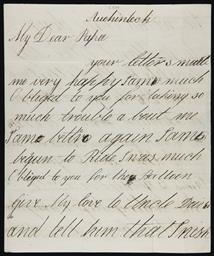 Auchinleck
My Dear Papa
your letters made
me very happy I am much
Obliged to you for taking so
much trouble a bout me
I am better again I am
begun to Ride I was much
Obliged to you for the pillion
give My love to Uncle
and tell him that I